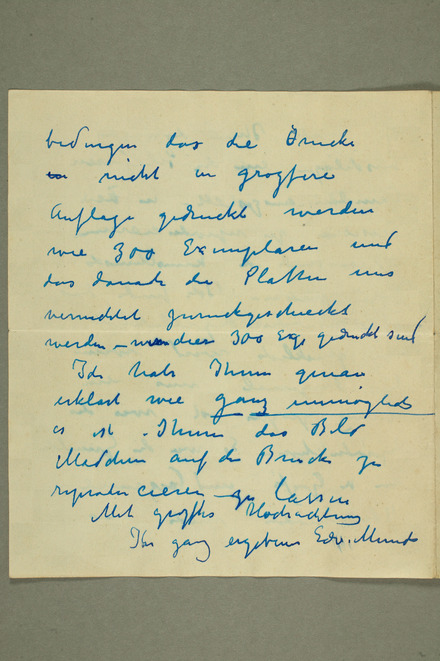 bedingen das die Drucke
nicht in grögfere
Auflage gedruckt werden
wie 300 Exemplaren und
das danach die Platten uns
vernichtet zurückgeschickt
werden – wen dies 300 Exp gedruckt sind
Ich habe Ihnen genau
erklärt wie ganz unmöglich
es ist Ihnen das Bild
Mädchen auf der Brücke zu
reproducieren zu lassen
Mit größter Hochachtung
Ihr ganz ergebener Edv. Munch